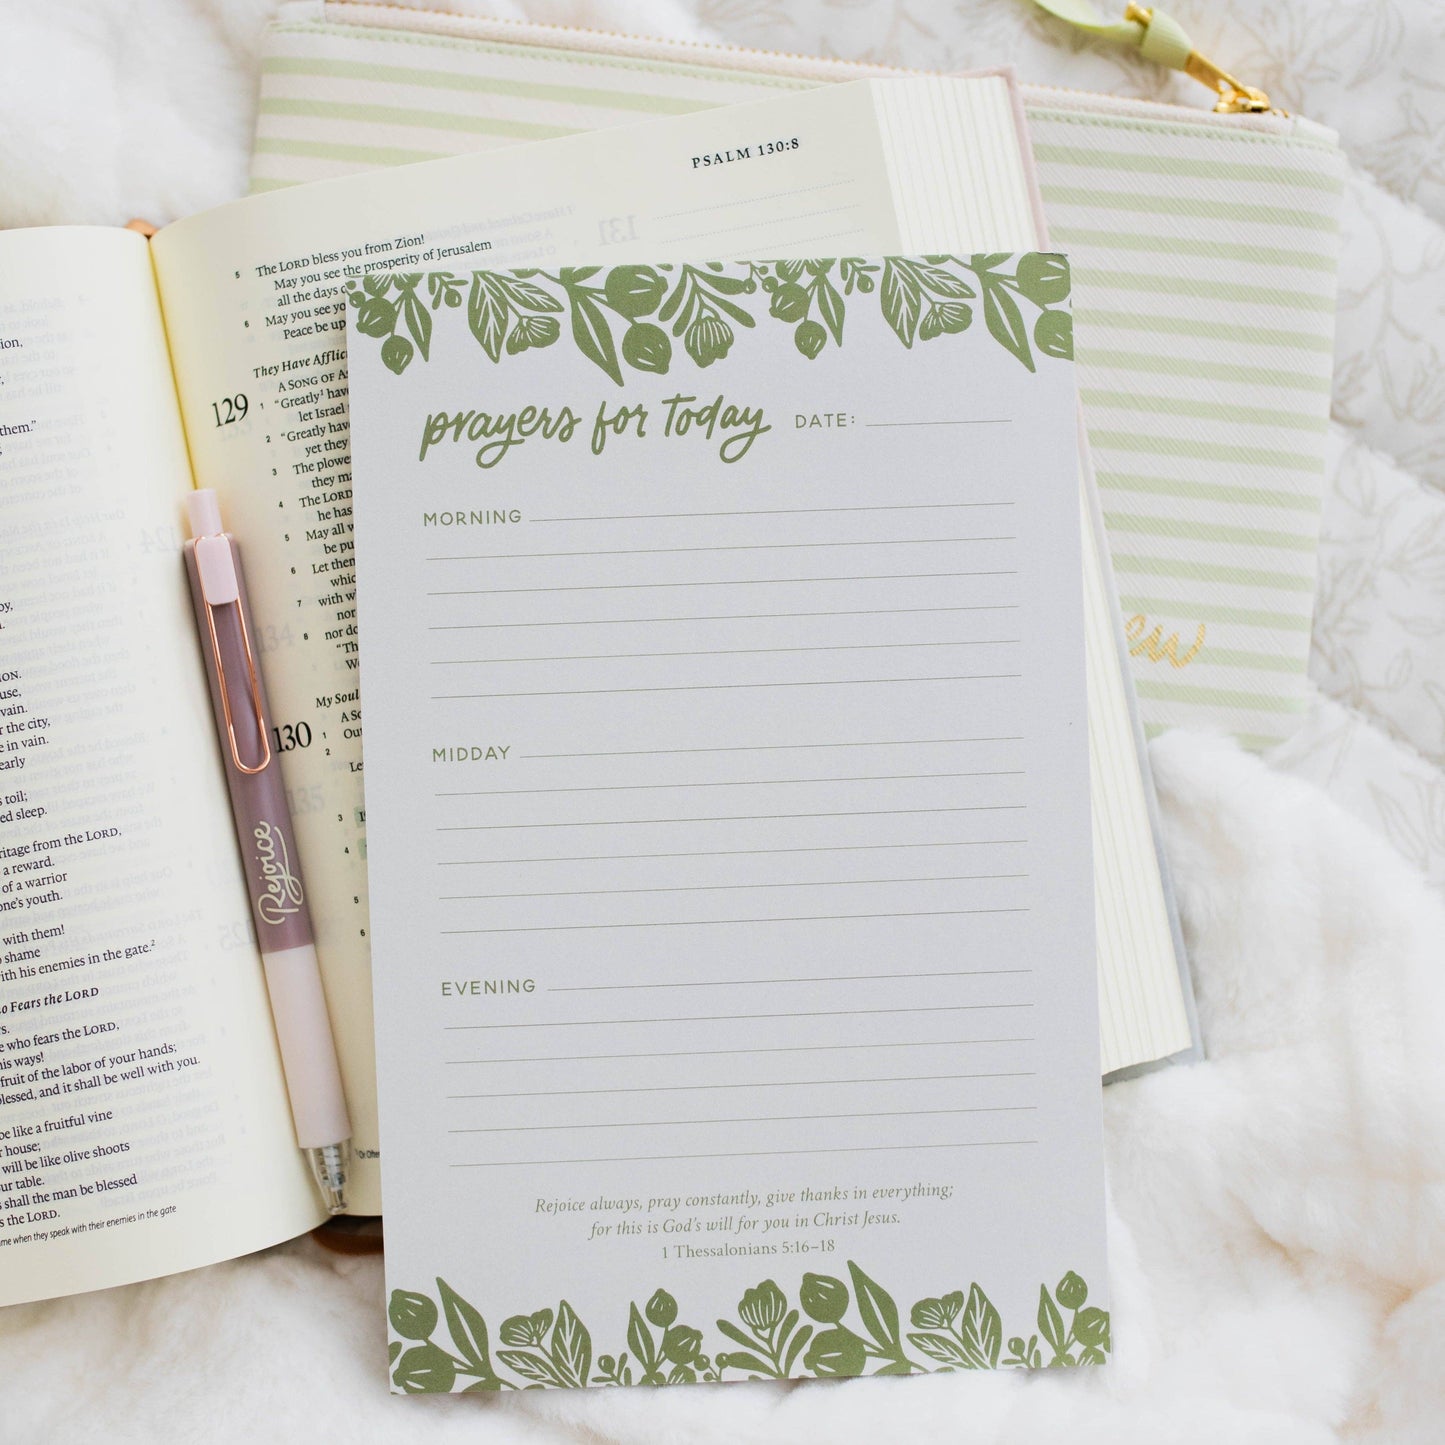 ion,
them."
ION.
use,
vain.
r the city,
e in vain.
early
toil;
ed sleep.
ritage from the LORD,
a reward.
of a warrior
one's youth.
with them!
shame
ith his enemies in the gate.²
o Fears the LORD
e who fears the LORD,
his ways!
fruit of the labor of your hands;
lessed, and it shall be well with you.
be like a fruitful vine
r house;
will be like olive shoots
ur table.
s shall the man be blessed
s the LORD.
me when they speak with their enemies in the gate
PSALM 130:8
5 The LORD bless you from Zion!
May you see the prosperity of Jerusalem
all the days
6 May you see yo
Peace be up
They Have Afflic
129
A SONG OF AS
1 "Greatly¹ have
let Israel
2 "Greatly have
yet they
3 The plowe
they ma
4 The LORD
he has
5 May all w
be pu
6 Let them
which
7 with w
nor
8 nor do
"Th
We
My Soul
130
A SO
1 Out
2
Le
3
4
5
6
¹ Or Often
131
Rejoice
prayers for today DATE:
MORNING
MIDDAY
EVENING
Rejoice always, pray constantly, give thanks in everything;
for this is God's will for you in Christ Jesus.
1 Thessalonians 5:16–18
ew